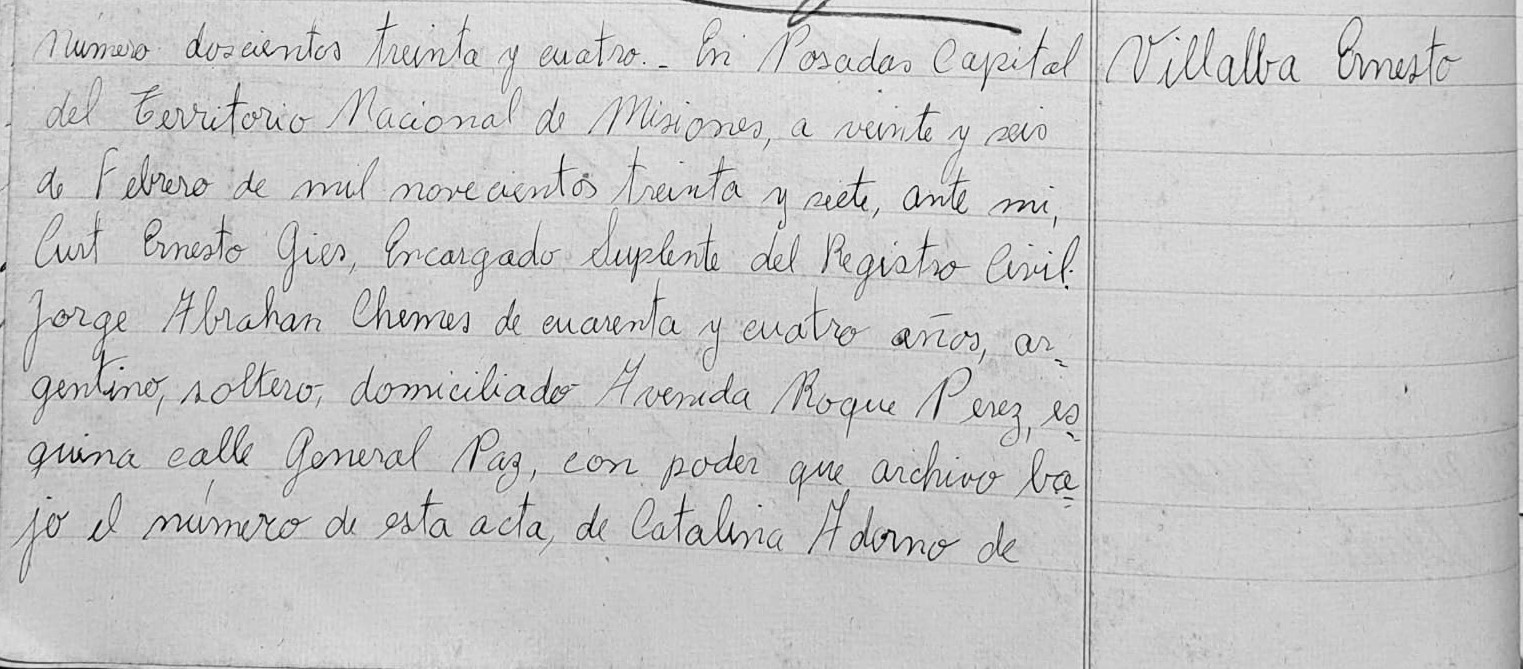 número doscientos treinta y cuatro.- En Posadas Capital
del Territorio Nacional de Misiones, a veinte y seis
de Febrero de mil novecientos treinta y siete, ante mi,
Curt Ernesto Gies, Encargado Suplente del Registro Civil.
Jorge Abrahan Chemes de cuarenta y cuatro años, ar=
gentino, soltero, domiciliado Avenida Roque Perez, es=
quina calle General Paz, con poder que archivo ba=
jo el número de esta acta, de Catalina Adorno de
Villalba Ernesto